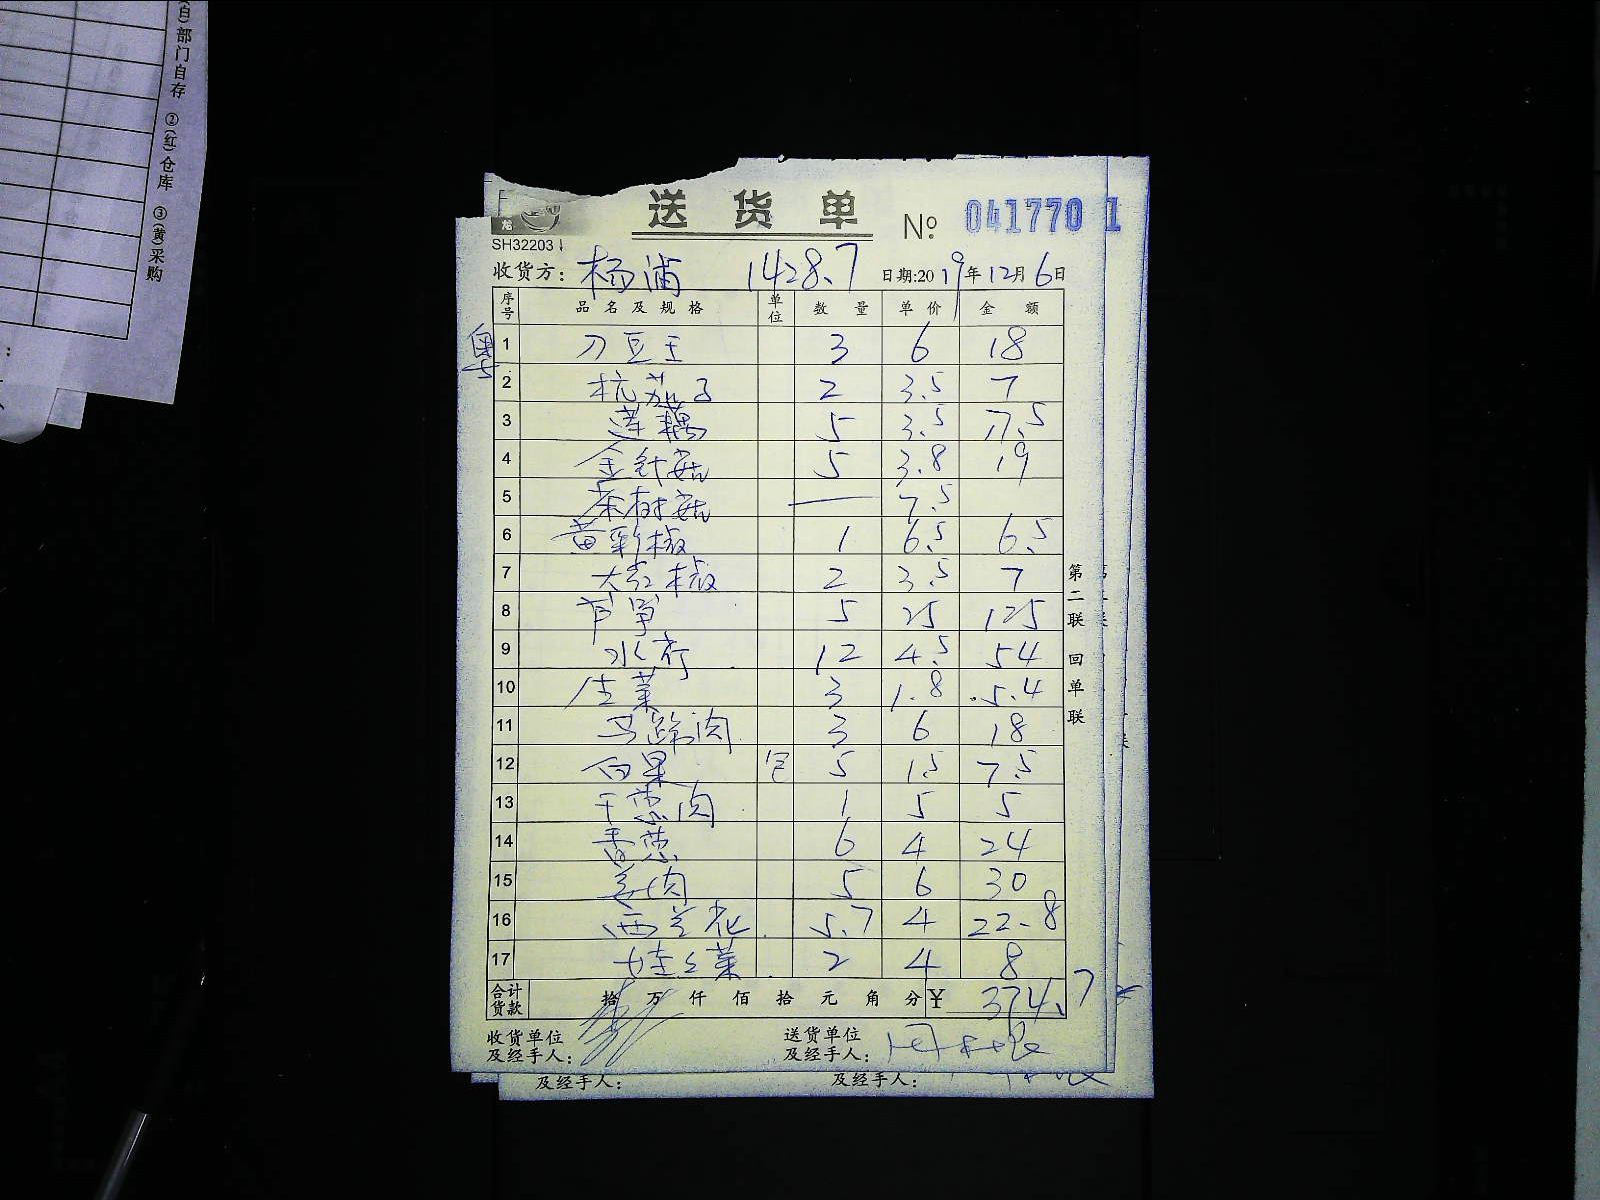 (白)部门自存 ②(红)仓库 ③(黄)采购
送货单 № 0417701
SH32203
收货方: 杨浦 1428.7 日期:2019年12月6日
序号 品名及规格 单位 数量 单价 金额
粤
1 刀豆王 3 6 18
2 杭茄子 2 3.5 7
3 莲藕 5 3.5 17.5
4 金针菇 5 3.8 19
5 茶树菇 — 7.5
6 黄彩椒 1 6.5 6.5
7 大红椒 2 3.5 7
8 芦笋 5 25 125
9 水芹 12 4.5 54
10 生菜 3 1.8 5.4
11 马蹄肉 3 6 18
12 白果 包 5 1.5 7.5
13 干葱肉 1 5 5
14 香葱 6 4 24
15 姜肉 5 6 30
16 西兰花 5.7 4 22.8
17 娃娃菜 2 4 8
合计货款 拾万仟佰拾元角分 ¥ 374.7
收货单位 送货单位
及经手人: 及经手人:
及经手人: 及经手人:
第二联 回单联